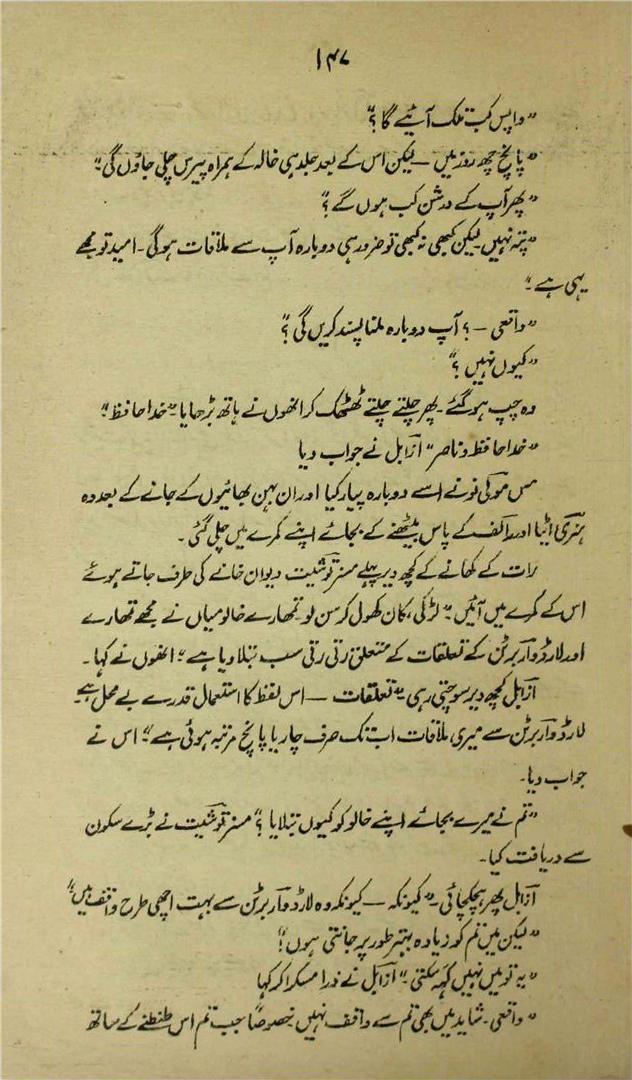 ۱۴۷
"واپس کب تلک آئیے گا؟"
"پانچ چھ روز میں — لیکن اس کے بعد جلد ہی خالہ کے ہمراہ پیرس چلی جاؤں گی۔"
"پھر آپ کے درشن کب ہوں گے؟"
"پتہ نہیں لیکن کبھی نہ کبھی تو ضرور ہی دوبارہ آپ سے ملاقات ہوگی۔ امید تو مجھے
یہی ہے۔"
"واقعی —؟ آپ دوبارہ ملنا پسند کریں گی؟"
"کیوں نہیں؟"
وہ چپ ہوگئے۔ پھر چلتے چلتے ٹھٹھک کر انھوں نے ہاتھ بڑھایا۔ "خدا حافظ۔"
"خدا حافظ و ناصر" ازابل نے جواب دیا
مس مولی نو نے اسے دوبارہ پیار کیا اور ان بہن بھائیوں کے جانے کے بعد وہ
ہنری اٹیا اور رالف کے پاس بیٹھنے کے بجائے اپنے کمرے میں چلی گئی۔
رات کے کھانے کے کچھ دیر پہلے مسز توشیت دیوان خانے کی طرف جاتے ہوئے
اس کے کمرے میں آئیں۔ "لڑکی، کان کھول کر سن لو۔ تمھارے خالو میاں نے مجھے تمھارے
اور لارڈ واربرٹن کے تعلقات کے متعلق رتی رتی سب بتلا دیا ہے۔" انھوں نے کہا۔
ازابل کچھ دیر سوچتی رہی۔ "تعلقات — اس لفظ کا استعمال قدرے بے محل ہے۔
لارڈ واربرٹن سے میری ملاقات اب تک صرف چار یا پانچ مرتبہ ہوئی ہے۔" اس نے
جواب دیا۔
"تم نے میرے بجائے اپنے خالو کو کیوں بتلایا؟" مسز توشیت نے بڑے سکون
سے دریافت کیا۔
ازابل پھر ہچکچائی۔ "کیونکہ — کیونکہ وہ لارڈ واربرٹن سے بہت اچھی طرح واقف ہیں"
"لیکن میں تم کو زیادہ بہتر طور پر جانتی ہوں!"
"یہ تو میں نہیں کہہ سکتی۔" ازابل نے ذرا مسکرا کر کہا
"واقعی۔ شاید میں بھی تم سے واقف نہیں خصوصاً جب تم اس طنطنے کے ساتھ